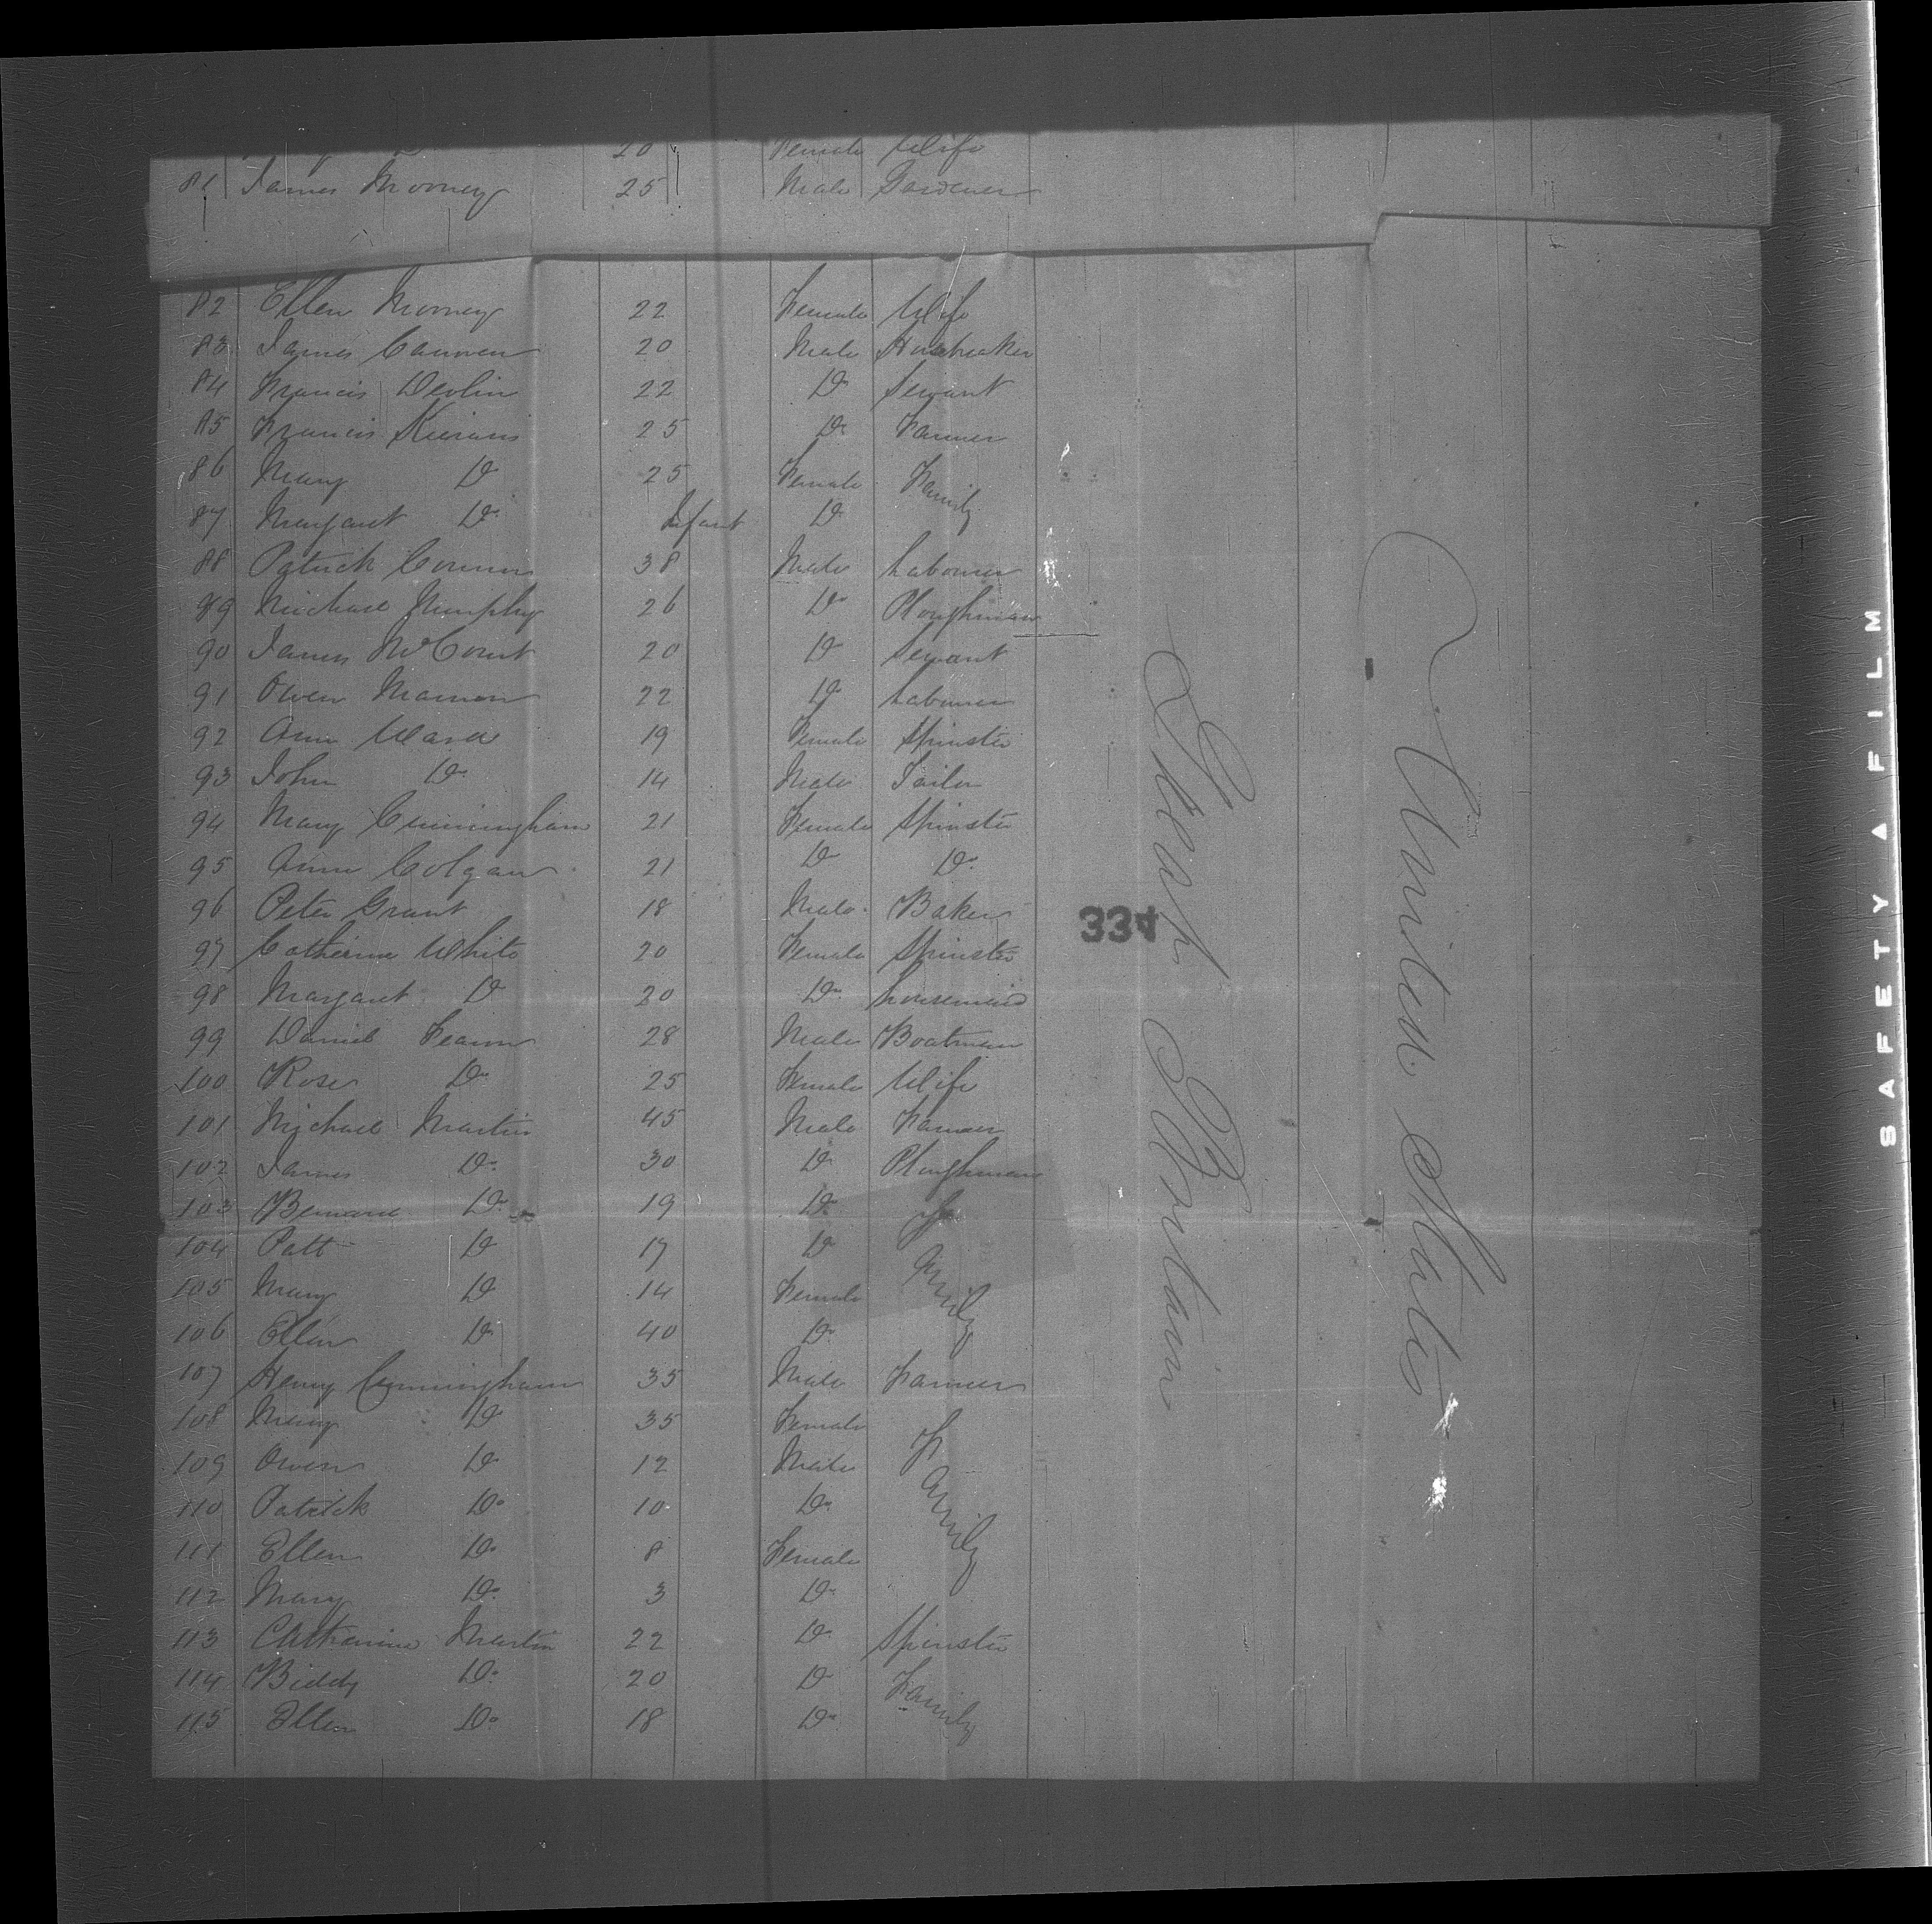 20 Female Wife
81 James Mooney 25 Male Gardener
82 Ellen Mooney 22 Female Wife
83 James 20 Male
84 Francis Devlin 22 Do Servant
85 Francis Kierans 25 Do Farmer
86 Mary Do 25 Female Family
87 Margaret Do Infant Do
88 Patrick 38 Male Labourer
89 Michael Murphy 26 Do Ploughman
90 James McCourt 20 Do Servant
91 Owen 22 Do Labourer
92 Ann Ward 19 Female Spinster
93 John Do 14 Male Tailor
94 Mary Cunningham 21 Female Spinster
95 Ann Colgan 21 Do Do
96 Peter Grant 18 Male Baker
97 Catherine White 20 Female Spinster
98 Margaret Do 20 Do housemaid
99 Daniel 28 Male Boatman
100 Rose Do 25 Female Wife
101 Michael Martin 45 Male Farmer
102 James Do 30 Do Ploughman
103 Bernard Do 19 Do Family
104 Patt Do 17 Do
105 Mary Do 14 Female
106 Ellen Do 40 Do
107 Henry Cunningham 35 Male Farmer
108 Mary Do 35 Female Family
109 Owen Do 12 Male
110 Patrick Do 10 Do
111 Ellen Do 8 Female
112 Mary Do 3 Do
113 Catharine Martin 22 Do Spinster
114 Biddy Do 20 Do Family
115 Ellen Do 18 Do
334
Great Britain
United States
SAFETY ▲ FILM